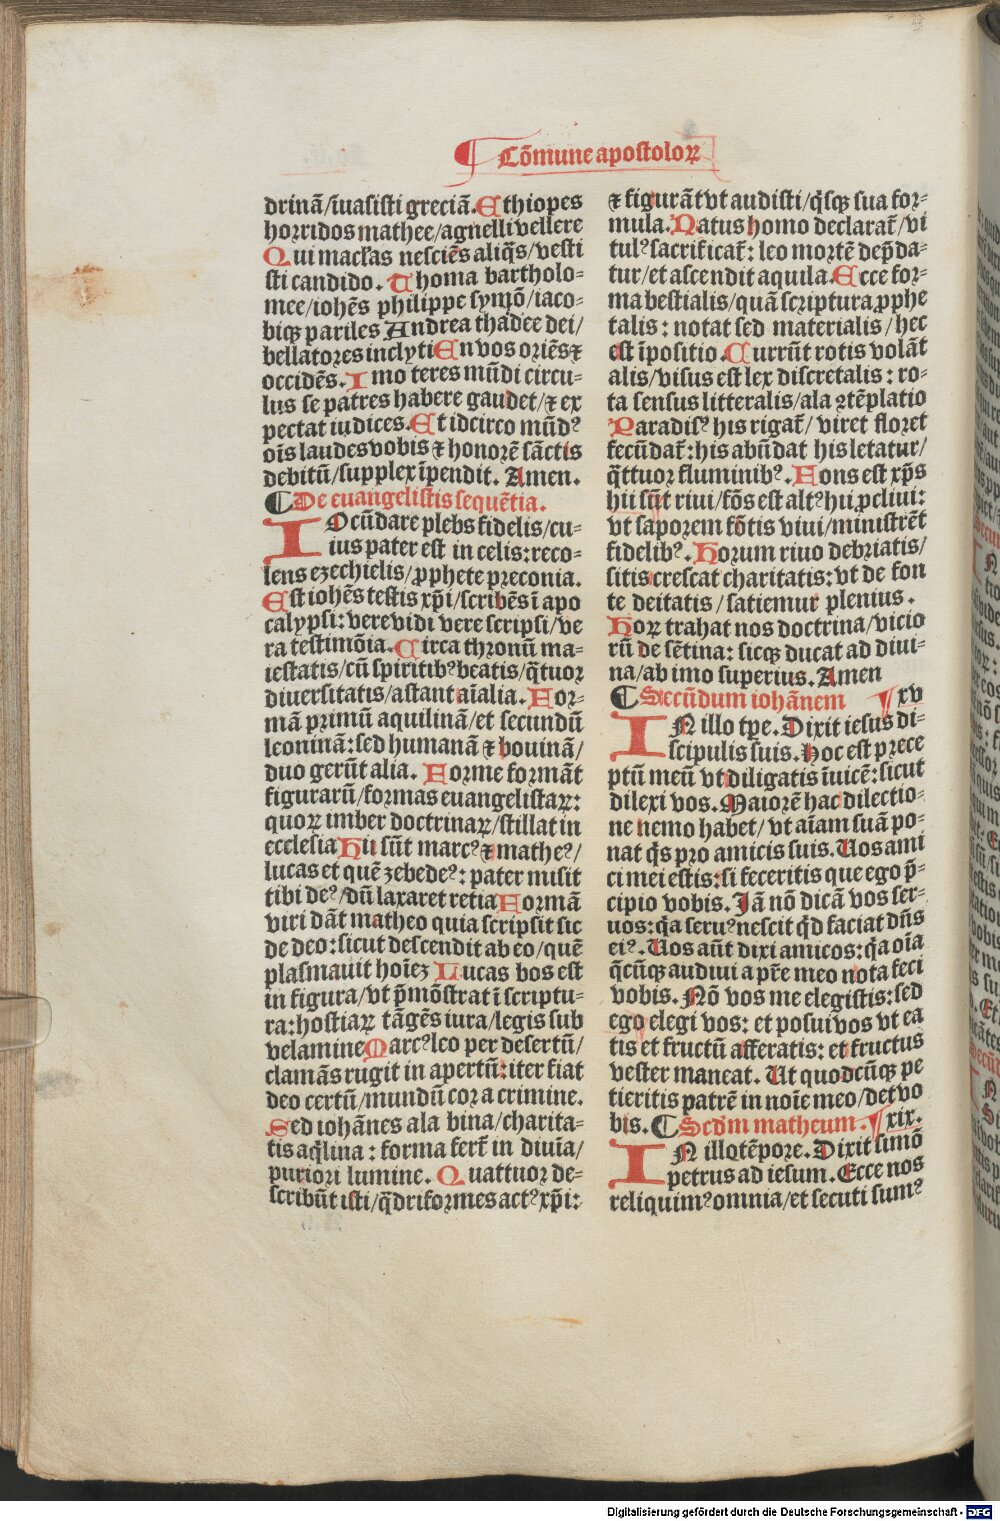 Cōmune apostoloꝝ
drinā/īuasisti greciā. Ethiopes
horridos mathee/agnelli vellere
Qui maculas nesciēs aliq̄s/vesti
sti candido. Thoma bartholo-
mee/iohēs philippe symō/iaco-
biqꝫ pariles Andrea thadee dei/
bellatores inclyti En vos oriēs ⁊
occidēs. Imo teres mūdi circu-
lus se patres habere gaudet/⁊ ex
pectat iudices. Et idcirco mūdꝰ
oīs laudes vobis ⁊ honorē sāctis
debitū/supplex īpendit. Amen.
De euangelistis sequētia.
IOcūdare plebs fidelis/cu-
ius pater est in celis: reco-
lens ezechielis/ꝓphete preconia.
Est iohēs testis xp̄i/scribēs ī apo
calypsi: vere vidi vere scripsi/ve
ra testimōia. Circa thronū ma-
iestatis/cū spiritibꝰ beatis/q̄tuor
diuersitatis/astant aīalia. For-
mā primū aquilinā/et secundū
leoninā: sed humanā ⁊ bouinā/
duo gerūt alia. Forme formāt
figurarū/formas euangelistaꝝ:
quoꝝ imber doctrinaꝝ/stillat in
ecclesia Hii sūt marcꝰ ⁊ matheꝰ/
lucas et quē zebedeꝰ: pater misit
tibi deꝰ/dū laxaret retia Formā
viri dāt matheo quia scripsit sic
de deo: sicut descendit ab eo/quē
plasmauit hoīeꝫ Lucas bos est
in figura/vt p̄mōstrat ī scriptu-
ra: hostiaꝝ tāgēs iura/legis sub
velamine Marcꝰ leo per desertū/
clamās rugit in apertū: iter fiat
deo certū/mundū cor a crimine.
Sed iohānes ala bina/charita-
tis aq̄lina: forma fert̄ in diuīa/
puriori lumine. Quattuor de-
scribūt isti/q̄driformes actꝰ xp̄i:
⁊ figurāt vt audisti/q̄sqꝫ sua for-
mula. Natus homo declarat̄/vi
tulꝰ sacrificat̄: leo mortē dep̄da-
tur/et ascendit aquila. Ecce for-
ma bestialis/quā scriptura ꝓphe
talis: notat sed materialis/hec
est īpositio. Currūt rotis volāt
alis/visus est lex discretalis: ro-
ta sensus litteralis/ala ꝯtēplatio
Paradisꝰ his rigat̄/viret floret
fecūdat̄: his abūdat his letatur/
q̄ttuor fluminibꝰ. Fons est xp̄s
hii sūt riui/fōs est altꝰ hii ꝓcliui:
vt saporem fōtis viui/ministrēt
fidelibꝰ. Horum riuo debriatis/
sitis crescat charitatis: vt de fon
te deitatis/satiemur plenius.
Hoꝝ trahat nos doctrina/vicio
rū de sētina: sicqꝫ ducat ad diui-
na/ab imo superius. Amen
Secūdum iohānem xv
IN illo tp̄e. Dixit iesus di-
scipulis suis. Hoc est prece
ptū meū vt diligatis īuicē: sicut
dilexi vos. Maiorē hac dilectio-
ne nemo habet/vt aīam suā po-
nat q̄s pro amicis suis. Uos ami
ci mei estis: si feceritis que ego p̄-
cipio vobis. Jā nō dicā vos ser-
uos: q̄a seruꝰ nescit q̄d faciat dn̄s
eiꝰ. Uos aūt dixi amicos: q̄a oīa
q̄cūqꝫ audiui a pr̄e meo nota feci
vobis. Nō vos me elegistis: sed
ego elegi vos: et posui vos vt ea
tis et fructū afferatis: et fructus
vester maneat. Ut quodcūqꝫ pe
tieritis patrē in noīe meo/det vo
bis. Sed'm matheum. xix.
IN illo tēpore. Dixit simō
petrus ad iesum. Ecce nos
reliquimꝰ omnia/et secuti sumꝰ
Digitalisierung gefördert durch die Deutsche Forschungsgemeinschaft - DFG